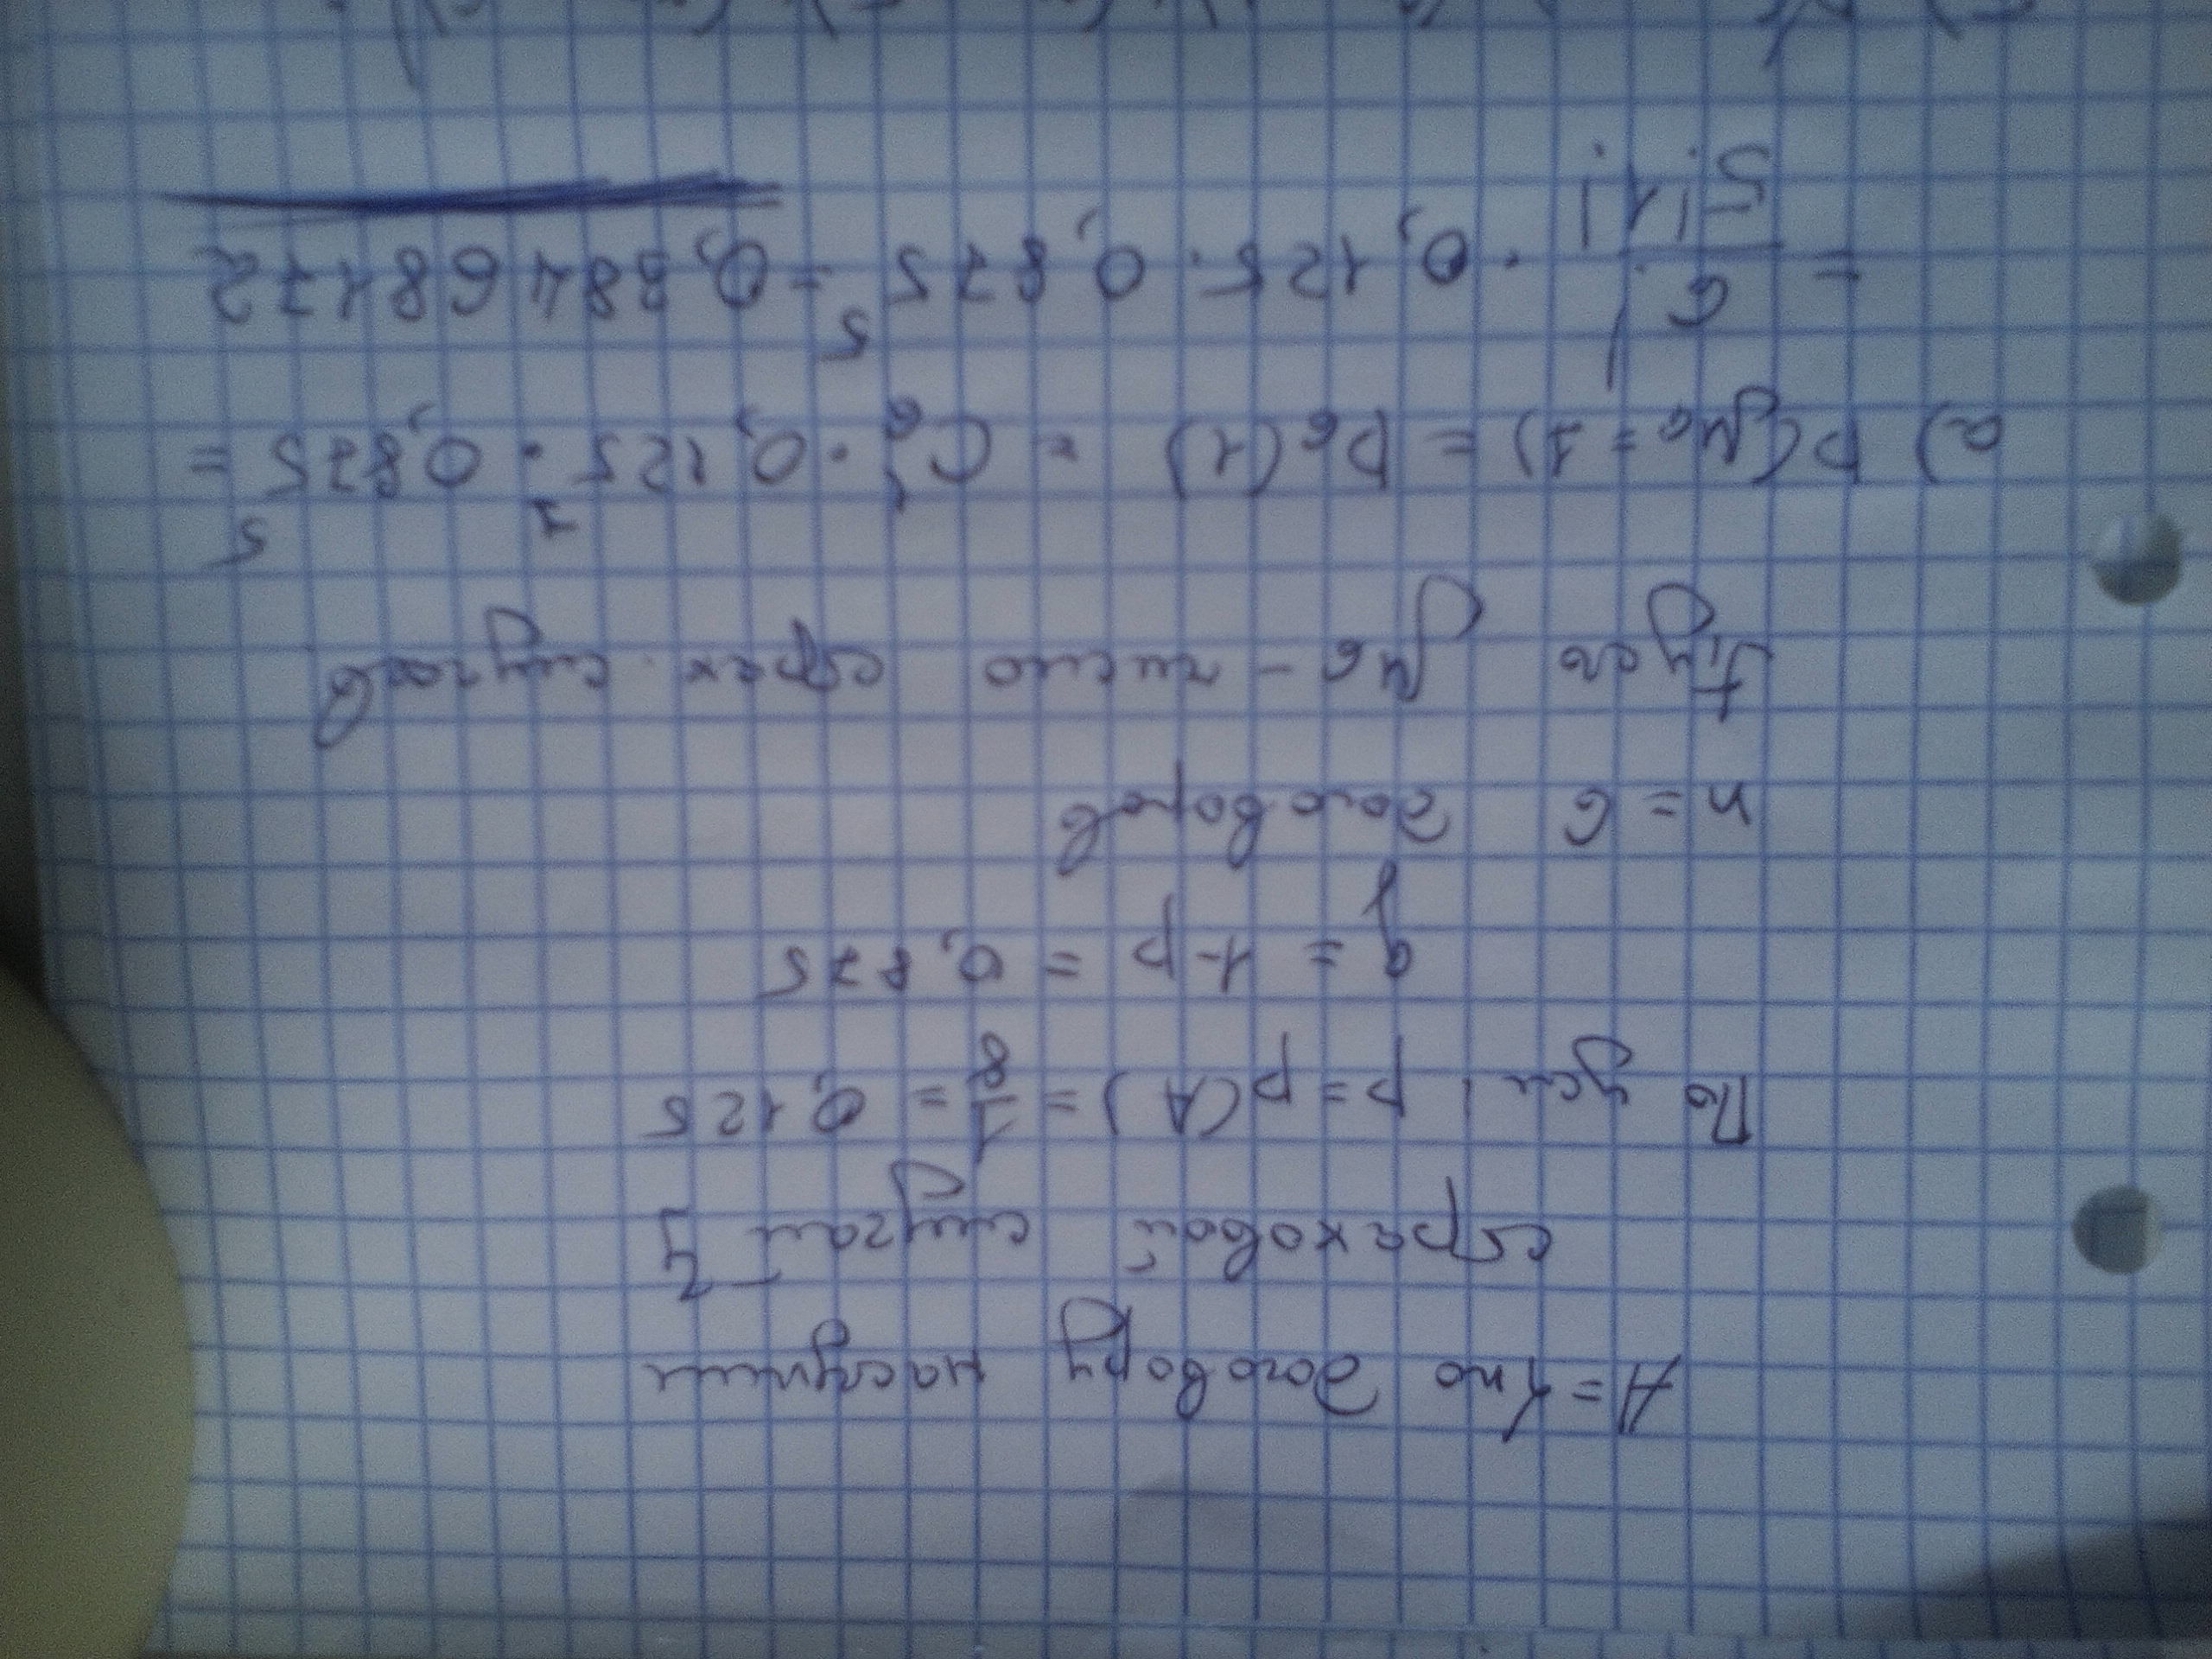 A = {по договору наступит
страховой случай}
По усл, p = p(A) = 1/8 = 0,125
q = 1-p = 0,875
n = 6 договоров
Пусть μ6 - число страх. случаев
а) P(μ6 = 1) = P6(1) = C₆¹ · 0,125¹ · 0,875⁵ =
= 6!/5!1! · 0,125 · 0,875⁵ = 0,38468172